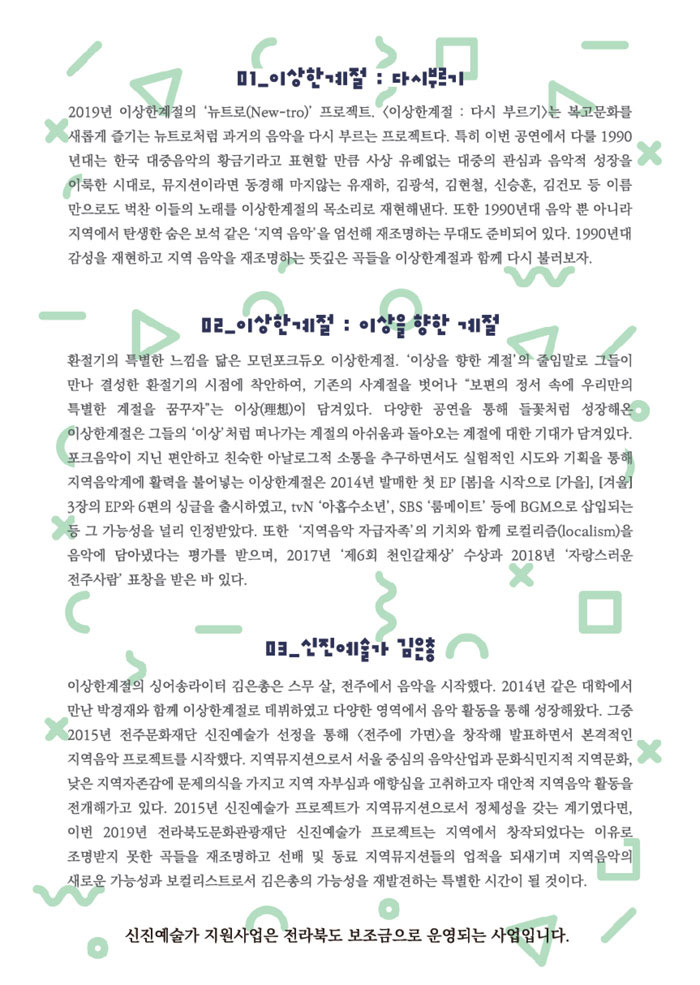 01_이상한계절 : 다시부르기
2019년 이상한계절의 ‘뉴트로(New-tro)’ 프로젝트. 〈이상한계절 : 다시 부르기〉는 복고문화를
새롭게 즐기는 뉴트로처럼 과거의 음악을 다시 부르는 프로젝트다. 특히 이번 공연에서 다룰 1990
년대는 한국 대중음악의 황금기라고 표현할 만큼 사상 유례없는 대중의 관심과 음악적 성장을
이룩한 시대로, 뮤지션이라면 동경해 마지않는 유재하, 김광석, 김현철, 신승훈, 김건모 등 이름
만으로도 벅찬 이들의 노래를 이상한계절의 목소리로 재현해낸다. 또한 1990년대 음악 뿐 아니라
지역에서 탄생한 숨은 보석 같은 ‘지역 음악’을 엄선해 재조명하는 무대도 준비되어 있다. 1990년대
감성을 재현하고 지역 음악을 재조명하는 뜻깊은 곡들을 이상한계절과 함께 다시 불러보자.
02_이상한계절 : 이상을 향한 계절
환절기의 특별한 느낌을 닮은 모던포크듀오 이상한계절. ‘이상을 향한 계절’의 줄임말로 그들이
만나 결성한 환절기의 시점에 착안하여, 기존의 사계절을 벗어나 “보편의 정서 속에 우리만의
특별한 계절을 꿈꾸자”는 이상(理想)이 담겨있다. 다양한 공연을 통해 들꽃처럼 성장해온
이상한계절은 그들의 ‘이상’처럼 떠나가는 계절의 아쉬움과 돌아오는 계절에 대한 기대가 담겨있다.
포크음악이 지닌 편안하고 친숙한 아날로그적 소통을 추구하면서도 실험적인 시도와 기획을 통해
지역음악계에 활력을 불어넣는 이상한계절은 2014년 발매한 첫 EP [봄]을 시작으로 [가을], [겨울]
3장의 EP와 6편의 싱글을 출시하였고, tvN ‘아홉수소년’, SBS ‘룸메이트’ 등에 BGM으로 삽입되는
등 그 가능성을 널리 인정받았다. 또한 ‘지역음악 자급자족’의 기치와 함께 로컬리즘(localism)을
음악에 담아냈다는 평가를 받으며, 2017년 ‘제6회 천인갈채상’ 수상과 2018년 ‘자랑스러운
전주사람’ 표창을 받은 바 있다.
03_신진예술가 김은총
이상한계절의 싱어송라이터 김은총은 스무 살, 전주에서 음악을 시작했다. 2014년 같은 대학에서
만난 박경재와 함께 이상한계절로 데뷔하였고 다양한 영역에서 음악 활동을 통해 성장해왔다. 그중
2015년 전주문화재단 신진예술가 선정을 통해 〈전주에 가면〉을 창작해 발표하면서 본격적인
지역음악 프로젝트를 시작했다. 지역뮤지션으로서 서울 중심의 음악산업과 문화식민지적 지역문화,
낮은 지역자존감에 문제의식을 가지고 지역 자부심과 애향심을 고취하고자 대안적 지역음악 활동을
전개해가고 있다. 2015년 신진예술가 프로젝트가 지역뮤지션으로서 정체성을 갖는 계기였다면,
이번 2019년 전라북도문화관광재단 신진예술가 프로젝트는 지역에서 창작되었다는 이유로
조명받지 못한 곡들을 재조명하고 선배 및 동료 지역뮤지션들의 업적을 되새기며 지역음악의
새로운 가능성과 보컬리스트로서 김은총의 가능성을 재발견하는 특별한 시간이 될 것이다.
신진예술가 지원사업은 전라북도 보조금으로 운영되는 사업입니다.